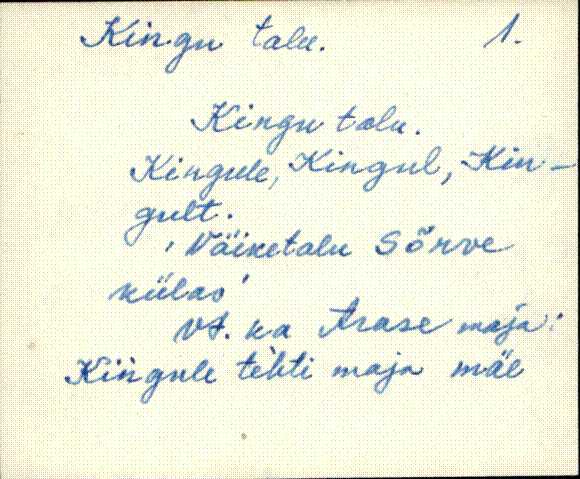 Kingu talu. 1.
Kingu talu.
Kingule, Kingul, Kin-
gult.
'Väiketalu Sõrve
külas'
vt. ka Arase maja:
Kiǹgule tèhti maja mäe